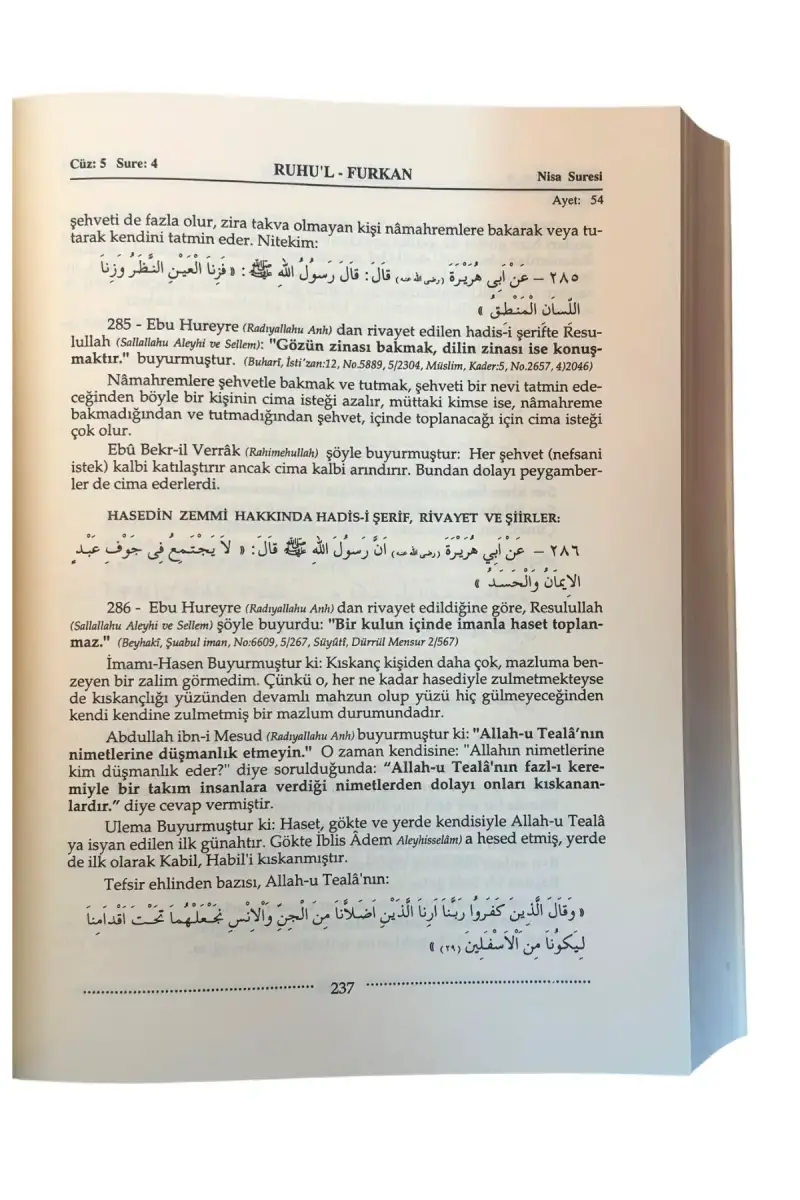 Cüz: 5 Sure: 4
RUHU'L - FURKAN
Nisa Suresi
Ayet: 54
şehveti de fazla olur, zira takva olmayan kişi nâmahremlere bakarak veya tu-
tarak kendini tatmin eder. Nitekim:
٢٨٥ – عَنْ اَبِي هُرَيْرَةَ (رضى الله عنه) قَالَ: قَالَ رَسُولُ اللهِ ﷺ: « فَزِنَا الْعَيْنِ النَّظَرُ وَزِنَا
اللِّسَانِ الْمَنْطِقُ »
285 - Ebu Hureyre (Radıyallahu Anh) dan rivayet edilen hadis-i şerifte Resu-
lullah (Sallallahu Aleyhi ve Sellem): "Gözün zinası bakmak, dilin zinası ise konuş-
maktır." buyurmuştur. (Buharî, İsti'zan:12, No.5889, 5/2304, Müslim, Kader:5, No.2657, 4)2046)
Nâmahremlere şehvetle bakmak ve tutmak, şehveti bir nevi tatmin ede-
ceğinden böyle bir kişinin cima isteği azalır, müttaki kimse ise, nâmahreme
bakmadığından ve tutmadığından şehvet, içinde toplanacağı için cima isteği
çok olur.
Ebû Bekr-il Verrâk (Rahimehullah) şöyle buyurmuştur: Her şehvet (nefsani
istek) kalbi katılaştırır ancak cima kalbi arındırır. Bundan dolayı peygamber-
ler de cima ederlerdi.
HASEDİN ZEMMİ HAKKINDA HADİS-İ ŞERİF, RİVAYET VE ŞİİRLER:
٢٨٦ – عَنْ اَبِي هُرَيْرَةَ (رضى الله عنه) اَنَّ رَسُولَ اللهِ ﷺ قَالَ: « لاَ يَجْتَمِعُ فِى جَوْفِ عَبْدٍ
الاِيمَانُ وَالْحَسَدُ »
286 - Ebu Hureyre (Radıyallahu Anh) dan rivayet edildiğine göre, Resulullah
(Sallallahu Aleyhi ve Sellem) şöyle buyurdu: "Bir kulun içinde imanla haset toplan-
maz." (Beyhakî, Şuabul iman, No:6609, 5/267, Süyûtî, Dürrül Mensur 2/567)
İmamı-Hasen Buyurmuştur ki: Kıskanç kişiden daha çok, mazluma ben-
zeyen bir zalim görmedim. Çünkü o, her ne kadar hasediyle zulmetmekteyse
de kıskançlığı yüzünden devamlı mahzun olup yüzü hiç gülmeyeceğinden
kendi kendine zulmetmiş bir mazlum durumundadır.
Abdullah ibn-i Mesud (Radıyallahu Anh) buyurmuştur ki: "Allah-u Tealâ'nın
nimetlerine düşmanlık etmeyin." O zaman kendisine: "Allahın nimetlerine
kim düşmanlık eder?" diye sorulduğunda: "Allah-u Tealâ'nın fazl-ı kere-
miyle bir takım insanlara verdiği nimetlerden dolayı onları kıskanan-
lardır." diye cevap vermiştir.
Ulema Buyurmuştur ki: Haset, gökte ve yerde kendisiyle Allah-u Tealâ
ya isyan edilen ilk günahtır. Gökte İblis Âdem Aleyhisselâm) a hesed etmiş, yerde
de ilk olarak Kabil, Habil'i kıskanmıştır.
Tefsir ehlinden bazısı, Allah-u Tealâ'nın:
« وَقَالَ الَّذِينَ كَفَرُوا رَبَّنَا اَرِنَا الَّذَيْنِ اَضَلاَّنَا مِنَ الْجِنِّ وَالْاِنْسِ نَجْعَلْهُمَا تَحْتَ اَقْدَامِنَا
لِيَكُونَا مِنَ الْاَسْفَلِينَ (٢٩) »
237